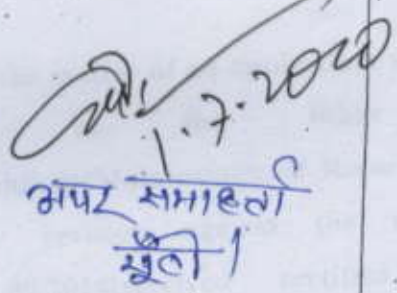 1.7.2020
अपर समाहर्ता
खूँटी।